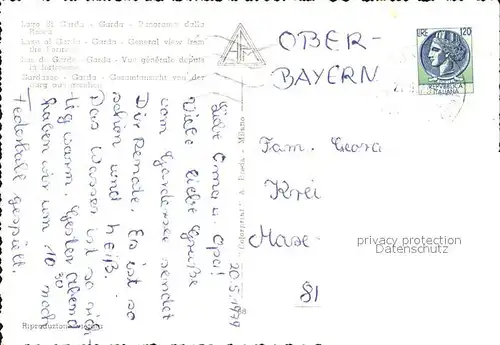 Lago di Garda - Garda - Panorama dalla
Rocca
Lake of Garda - Garda - General view from
the Fortress
Lac de Garde - Garda - Vue générale depuis
la
Gardasee - Garda - Gesamtansicht von der
Burg aus gesehen
OBER-
BAYERN
LIRE 120
REPVBBLICA
ITALIANA
Fam.
Liebe Oma u. Opa!
Viele liebe Grüße
vom Gardasee sendet
Dir Renate. Es ist so
schön und heiß.
Das Wasser ist so rich
tig warm. Gestern Abend
haben wir um 10 30 noch
Federball gespielt
20.5.1979
81
A. - Milano
privacy protection
Datenschutz